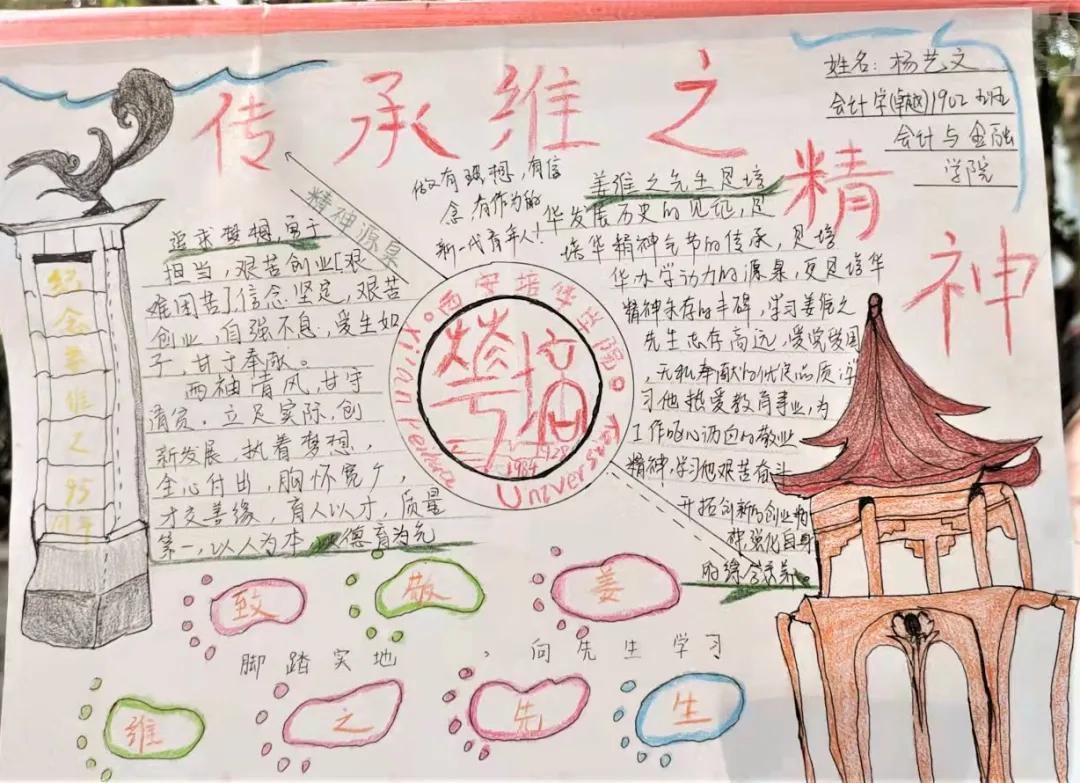 传承维之精神
姓名：杨艺文
会计学(卓越)1902班
会计与金融
学院
精神源泉
做有理想，有信
念有作为的
新一代青年人！
追求梦想，勇于
担当，艰苦创业[艰
难困苦]信念坚定，艰苦
创业，自强不息，爱生如
子，甘于奉献。
两袖清风，甘守
清贫，立足实际，创
新发展，执着梦想，
全心付出，胸怀宽广，
才交善缘，育人以才，质量
第一，以人为本，德育为先
姜维之先生见培
华发展历史的见证，是
培华精神气节的传承，见培
华办学动力的源泉，更是培华
精神永存的丰碑，学习姜维之
先生志存高远，爱党爱国
，无私奉献的优良品质，学
习他热爱教育事业，为
工作呕心沥血的敬业
精神，学习他艰苦奋斗
开拓创新的创业精
神，强化自身
的综合素养。
西安培华学院
華培
1984 1928
Xi'an Peihua University
纪念姜维之95周年
致敬姜
脚踏实地，向先生学习
维之先生